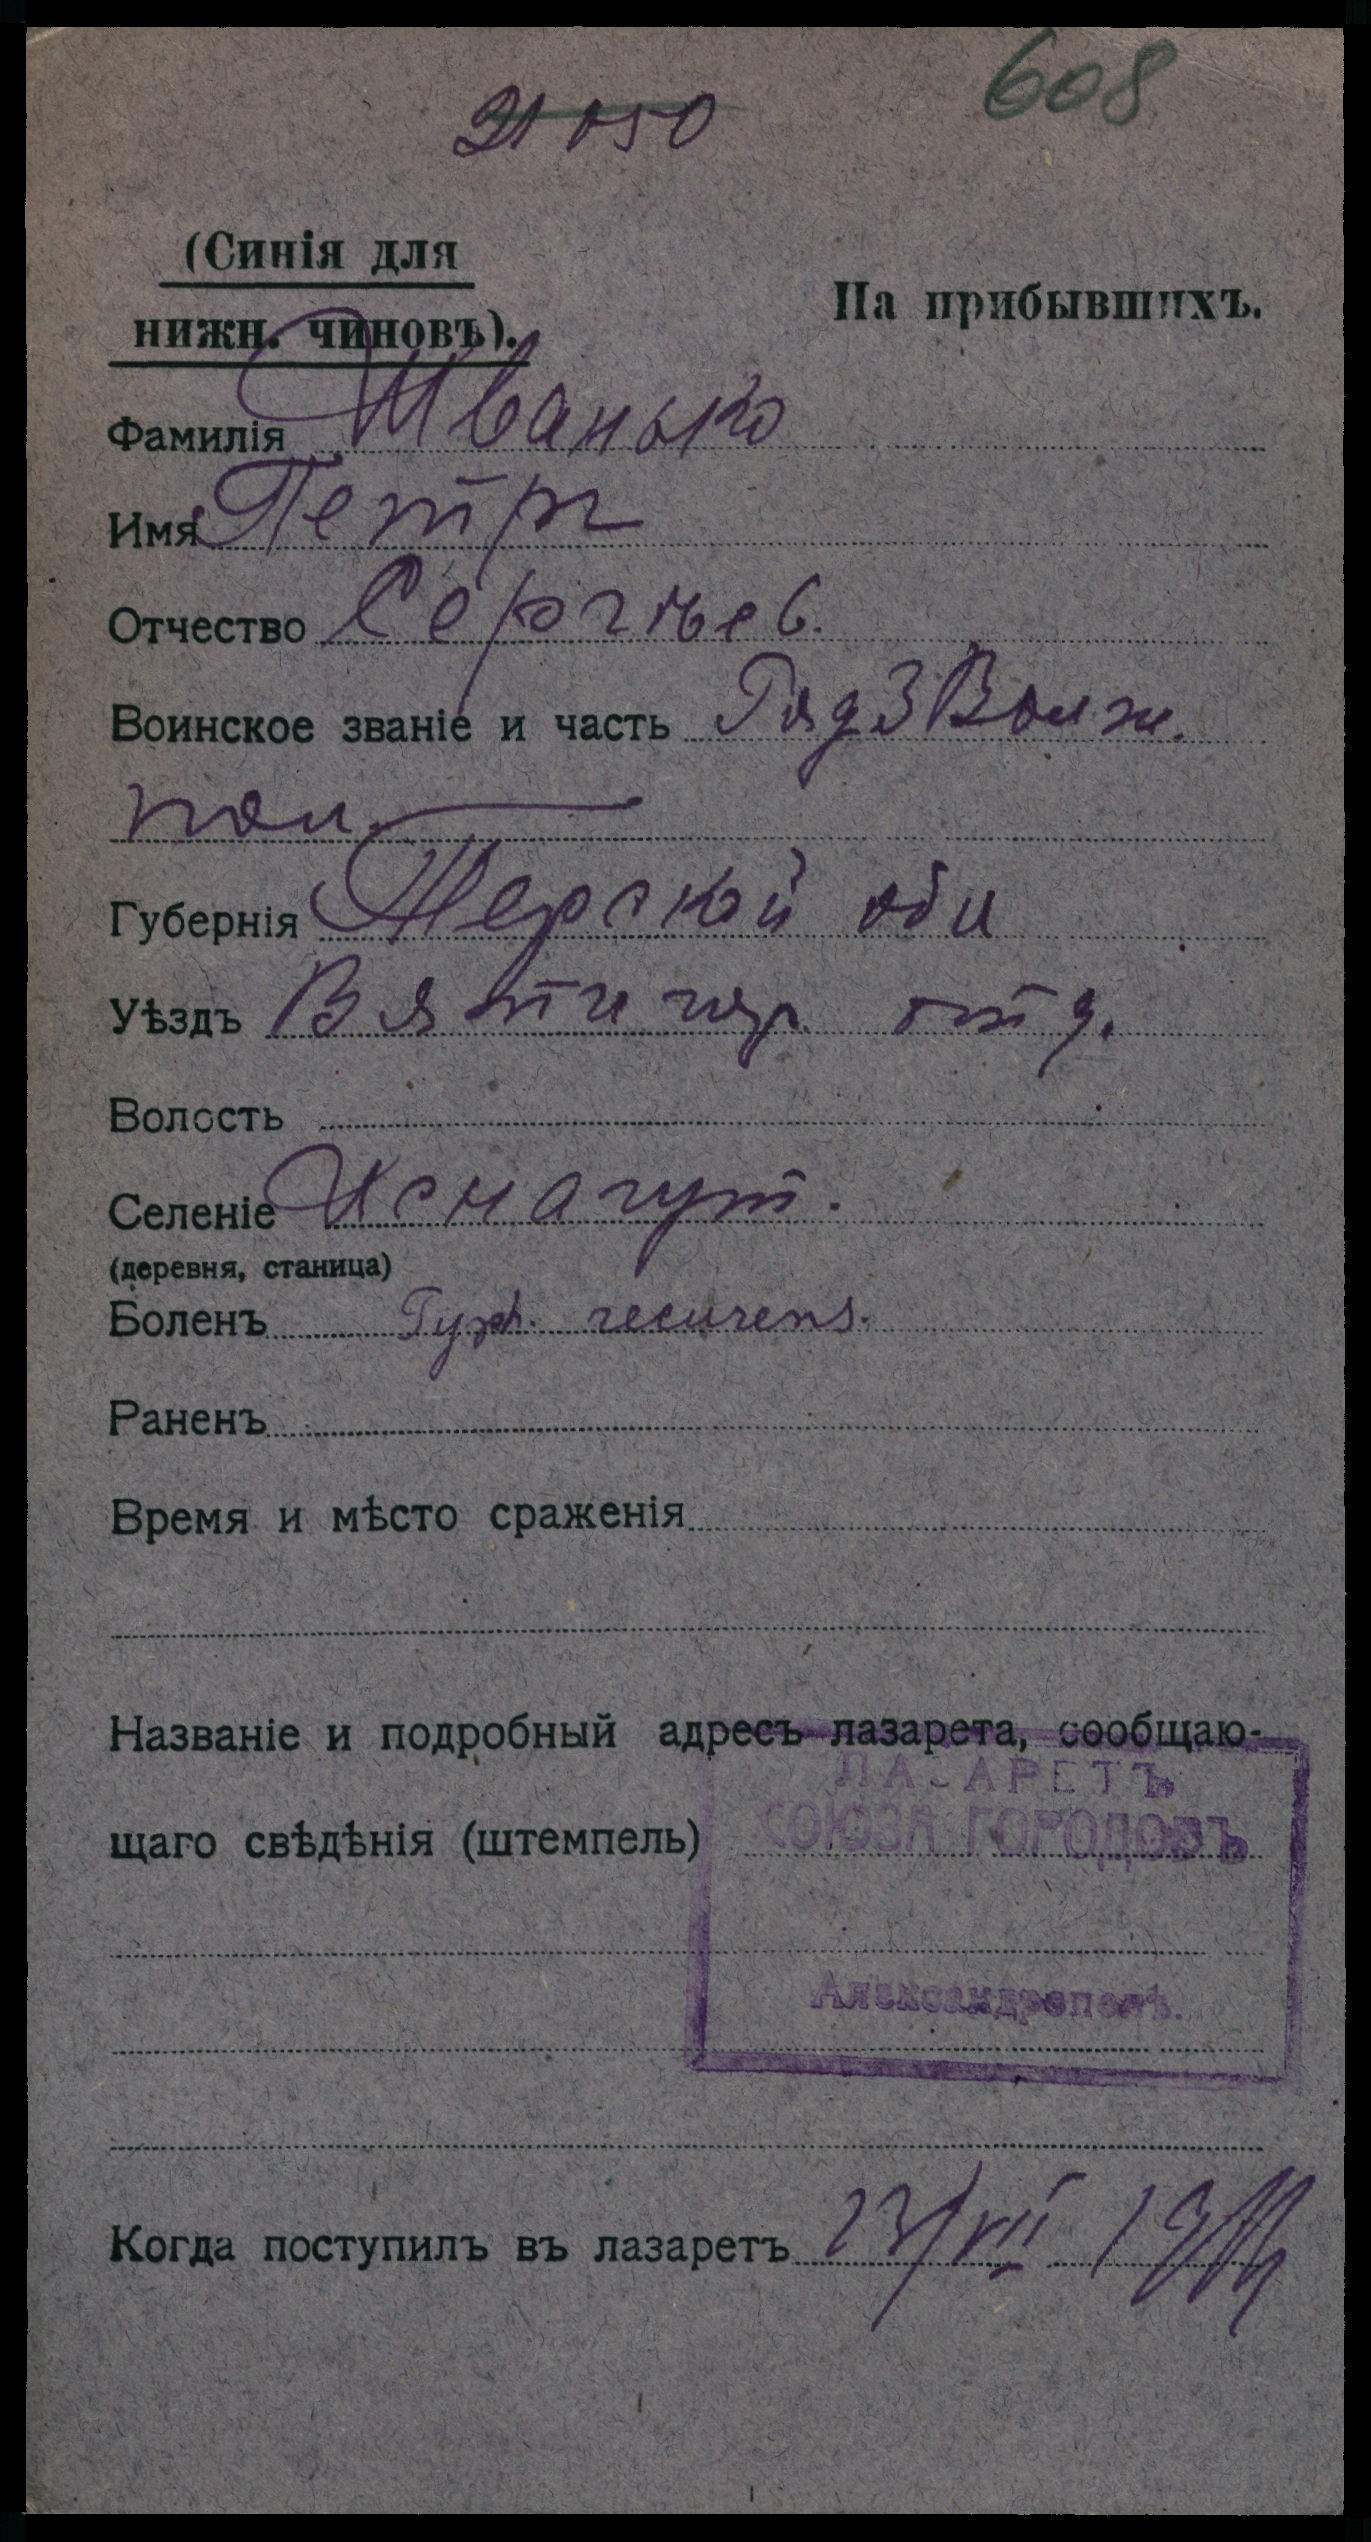 608
21 050
(Синія для
нижн. чиновъ).
На прибывшихъ.
Фамилія Иванько
Имя Петръ
Отчество Сергѣев.
Воинское званіе и часть Ряд 3 Волж.
пол.
Губернія Терской обл
Уѣздъ Вятигор. отд.
Волость
Селеніе
(деревня, станица)
Боленъ Typh. recurens.
Раненъ
Время и мѣсто сраженія
Названіе и подробный адресъ лазарета, сообщаю-
щаго свѣдѣнія (штемпель)
ЛАЗАРЕТЪ
СОЮЗА ГОРОДОВЪ
Александрополь.
Когда поступилъ въ лазаретъ 23/VII